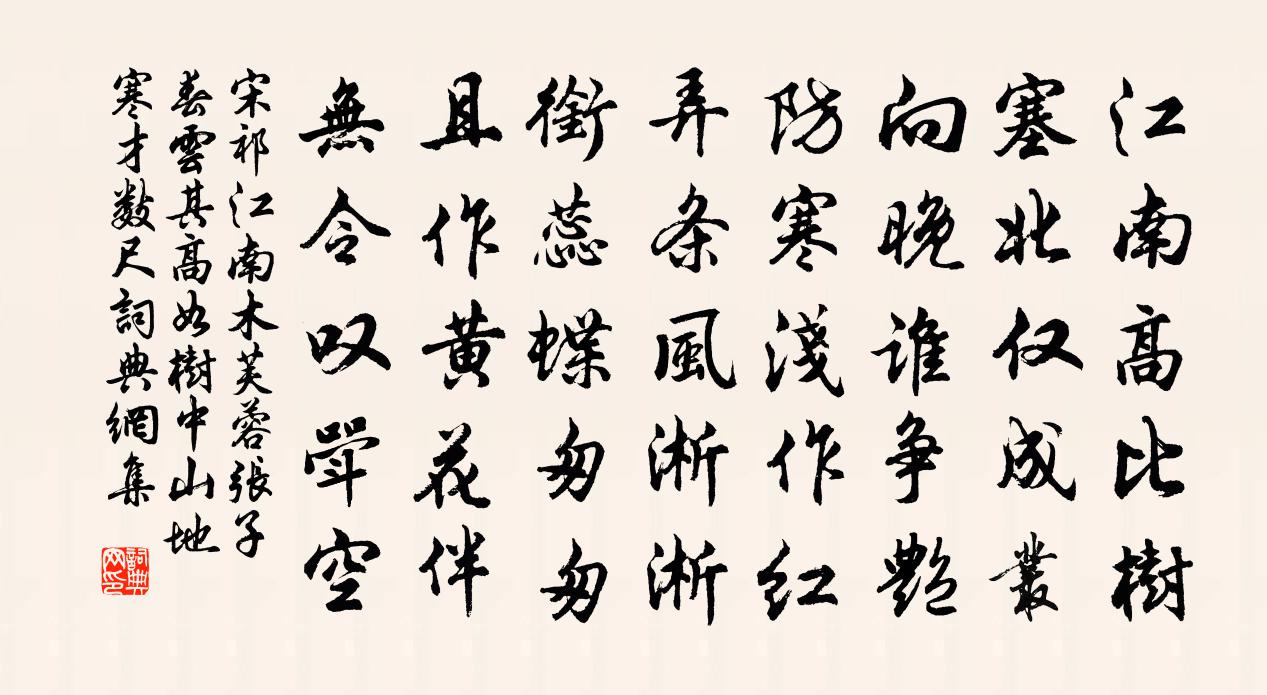 江南高比樹
塞北仅成叢
向晚誰争艶
防寒淺作红
弄条風淅淅
銜蕊蝶匆匆
且作黄花伴
無令叹斝空
宋祁江南木芙蓉張子
春雲其高如樹中山地
寒才数尺詞典網集
詞典
网印